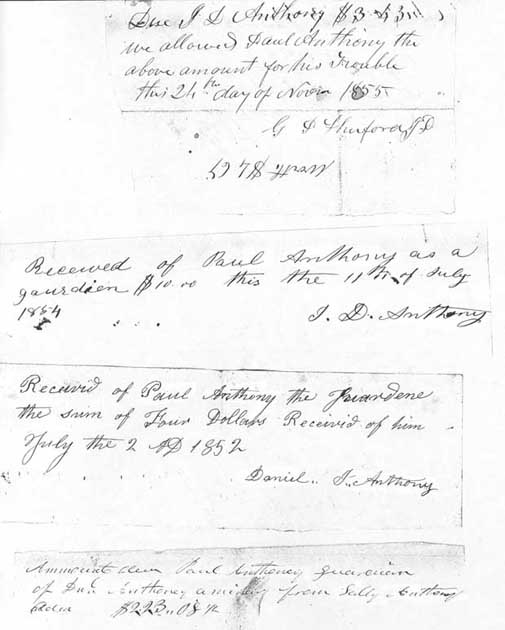 Due J D Anthony $3
we allowed Paul Anthony the
above amount for his Trouble
this 24th day of Novm 1855
G D
Received of Paul Anthony as a
gaurdien $10.00 this the 11th of July
1854
J. D. Anthony
Receivid of Paul Anthony the Guardene
the sum of Four Dollars Receivid of him
July the 2 AD 1852
Daniel J. Anthony
Ammount due Paul Anthoney guardian
of Dan Anthoney a miner from Sally Anthony
$223.08